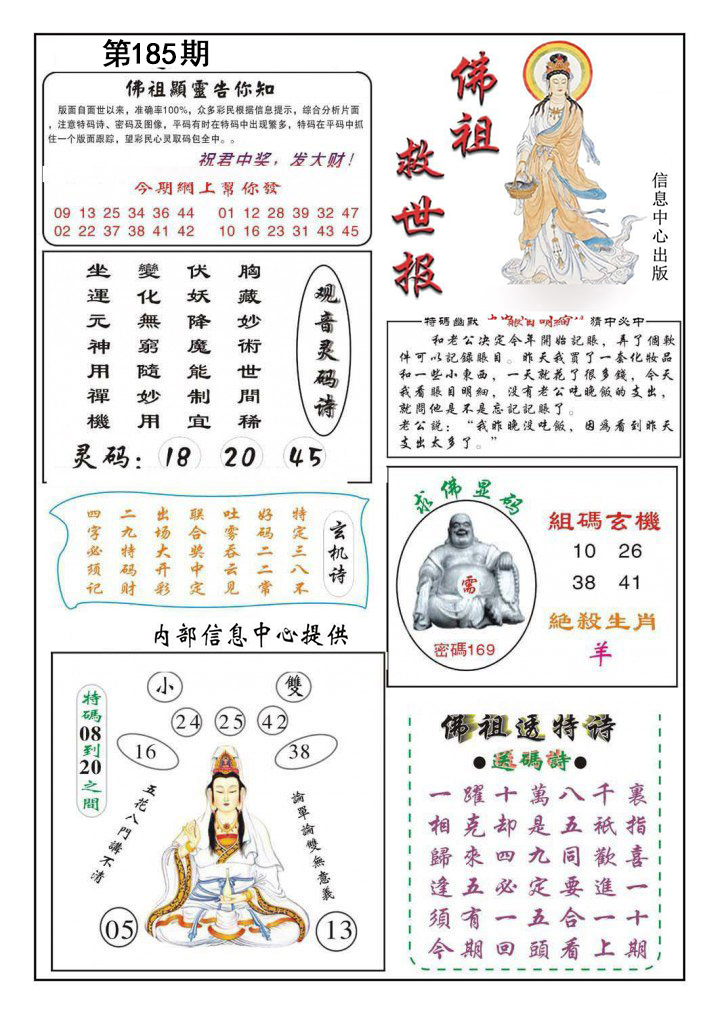 第185期
佛祖顯靈告你知
版面自面世以来，准确率100%，众多彩民根据信息提示，综合分析片面
，注意特码诗、密码及图像，平码有时在特码中出现繁多，特码在平码中抓
住一个版面跟踪，望彩民心灵取码包全中。。
祝君中奖，发大财！
今期網上幫你發
09 13 25 34 36 44 01 12 28 39 32 47
02 22 37 38 41 42 10 16 23 31 43 45
佛祖
救世报
信息中心出版
坐變伏胸
運化妖藏
元無降妙
神窮魔術
用隨能世
禪妙制間
機用宜稀
观音灵码诗
灵码：18 20 45
特碼幽默
眼目明細
猜中必中
和老公决定今年開始記賬，弄了個軟
件可以記錄賬目。昨天我買了一套化妝品
和一些小東西，一天就花了很多錢，今天
我看賬目明細，没有老公吃晚飯的支出，
就問他是不是忘記記賬了。
老公説：“我昨晚没吃飯，因爲看到昨天
支出太多了。”
四二出联吐好特
字九场合雾码定
必特大奖吞二三
须码开中云二八
记财彩定见常不
玄机诗
求佛显码
需
密碼169
組碼玄機
10 26
38 41
絕殺生肖
羊
内部信息中心提供
特碼08到20之間
小 雙
24 25 42
16 38
五花八門講不清
論單論雙無意義
05 13
佛祖透特诗
●送碼詩●
一躍十萬八千裏
相克却是五衹指
歸來四九同歡喜
逢五必定要進一
須有一五合一十
今期回頭看上期